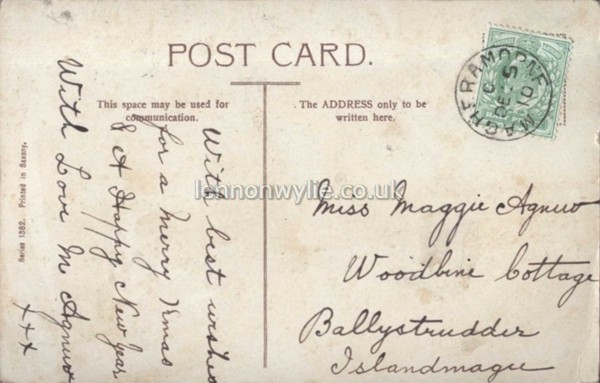 POST CARD.
This space may be used for
communication.
The ADDRESS only to be
written here.
MAGHERAMORNE
C
DE 5
10
With best wishes
for a Merry Xmas
& A Happy New Year
With Love M Agnew
xxx
Miss Maggie Agnew
Woodbine Cottage
Ballystrudder
Islandmagee
Series 1382. Printed in Saxony.
lennonwylie.co.uk